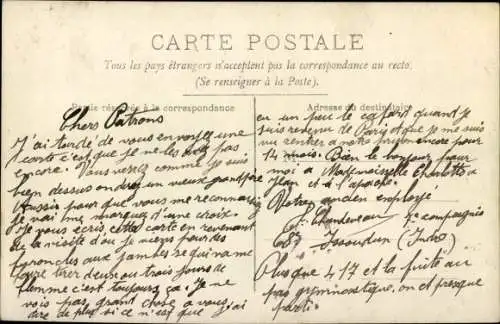 CARTE POSTALE
Tous les pays étrangers n'acceptent pas la correspondance au recto.
(Se renseigner à la Poste).
Partie réservée à la correspondance
Adresse du destinataire
Chers Patrons
J'ai tardé de vous envoyer une
carte c'est que je ne les pas
encore. Vous verez comme je suis
bien dessus on dirai un vieux grand père
Aussi pour que vous me reconnaissiez
je vai me marquez d'une croix.
Je vous ecris cette carte en revenant
de la visite d'ou je viens pour des
furoncles aux jambes se qui va me
faire tirer deux ou trois jours de
flemme c'est toujours ça. Je ne
vois pas grand chose a vous
dire de plus si ce n'est que j'ai
eu un peu le cafard quand je
suis revenu de Paris et que je me suis
vu rentrer a notre prison encore pour
14 mois. Bien le bonjour pour
moi a Mademoiselle
Jean et a
Votre ancien employé
4e compagnie
Issoudun (Indre)
Plus que 417 et la fuite au
pas gymnastique, on et presque
parti.